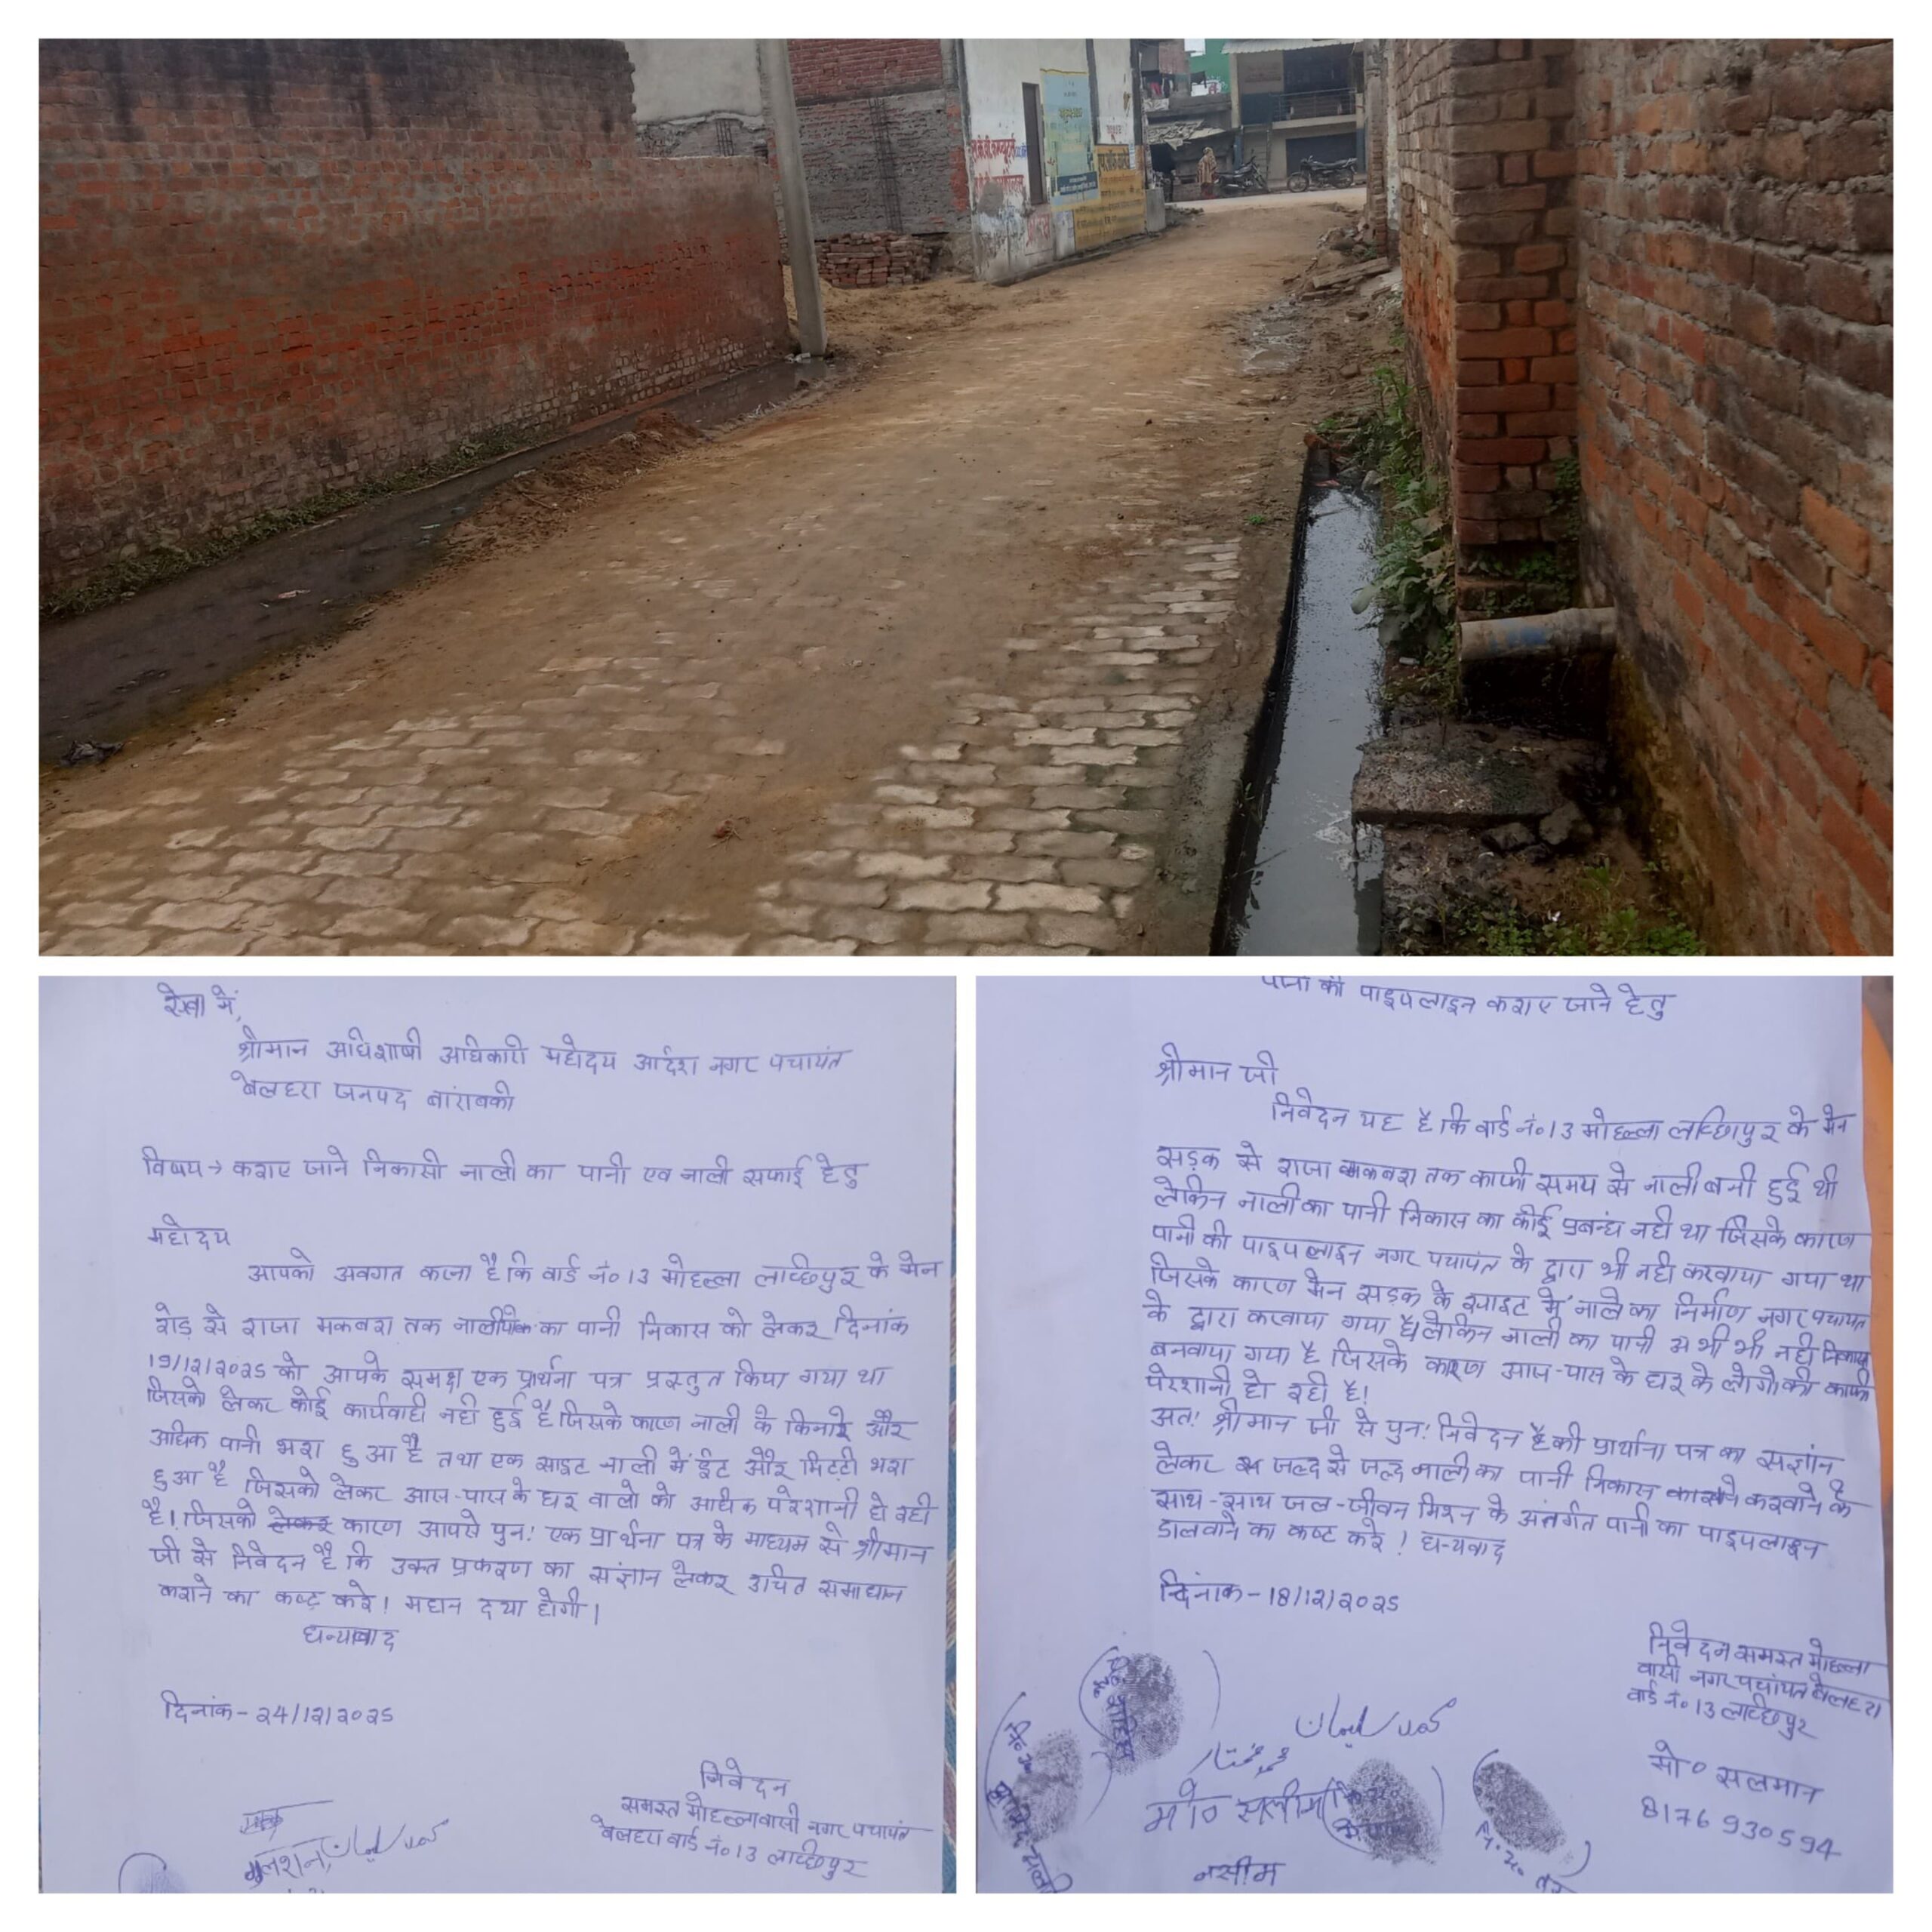 सेवा में,
श्रीमान अधिशाषी अधिकारी महोदय आर्दश नगर पचायंत
बेलहरा जनपद बांराबकी
विषय → कराए जाने निकासी नाली का पानी एव नाली सफाई हेतु
महोदय
आपको अवगत कराना है कि वार्ड नं० 13 मोहल्ला लाच्छिपुर के मेन
रोड़ से राजा मकबरा तक नाली का पानी निकास को लेकर दिनांक
19/12/2025 को आपके समक्ष एक प्रार्थना पत्र प्रस्तुत किया गया था
जिसको लेकर कोई कार्यवाही नही हुई है जिसके कारण नाली के किनारे और
अधिक पानी भरा हुआ है तथा एक साइट नाली में ईट और मिट्टी भरा
हुआ है जिसको लेकर आस-पास के घर वालो को अधिक परेशानी हो रही
है! जिसको लेकर कारण आपसे पुन: एक प्रार्थना पत्र के माध्यम से श्रीमान
जी से निवेदन है कि उक्त प्रकरण का संज्ञान लेकर उचित समाधान
कराने का कष्ट करे! महान दया होगी।
धन्यावाद
दिनांक - 24/12/2025
निवेदन
समस्त मोहल्लावासी नगर पचायंत
बेलहरा वार्ड नं० 13 लाच्छिपुर
गुलशन,
पानी की पाइपलाइन कराए जाने हेतु
श्रीमान जी
निवेदन यह है कि वार्ड नं० 13 मोहल्ला लच्छिपुर के मेन
सड़क से राजा मकबरा तक काफी समय से नाली बनी हुई थी
लेकिन नाली का पानी निकास का कोई प्रबन्ध नही था जिसके कारण
पानी की पाइपलाइन नगर पचायंत के द्वारा भी नही करवाया गया था
जिसके कारण मेन सड़क के साइट में नाले का निर्माण नगर पचायत
के द्वारा करवाया गया है लेकिन नाली का पानी अभी भी नही निकास
बनवाया गया है जिसके कारण आस-पास के घर के लोगो की काफी
परेशानी हो रही है!
अत: श्रीमान जी से पुन: निवेदन है की प्रार्थाना पत्र का सज्ञांन
लेकर जल्द से जल्द नाली का पानी निकास करवाने के
साथ-साथ जल-जीवन मिशन के अंर्तगत पानी का पाइपलाइन
डालवाने का कष्ट करे! धन्यवाद
दिनांक - 18/12/2025
निवेदन समस्त मोहल्ला
वासी नगर पचांयत बेलहरा
वार्ड नं० 13 लाच्छिपुर
मो० सलमान
8176930594
मो० सलीम
नसीम